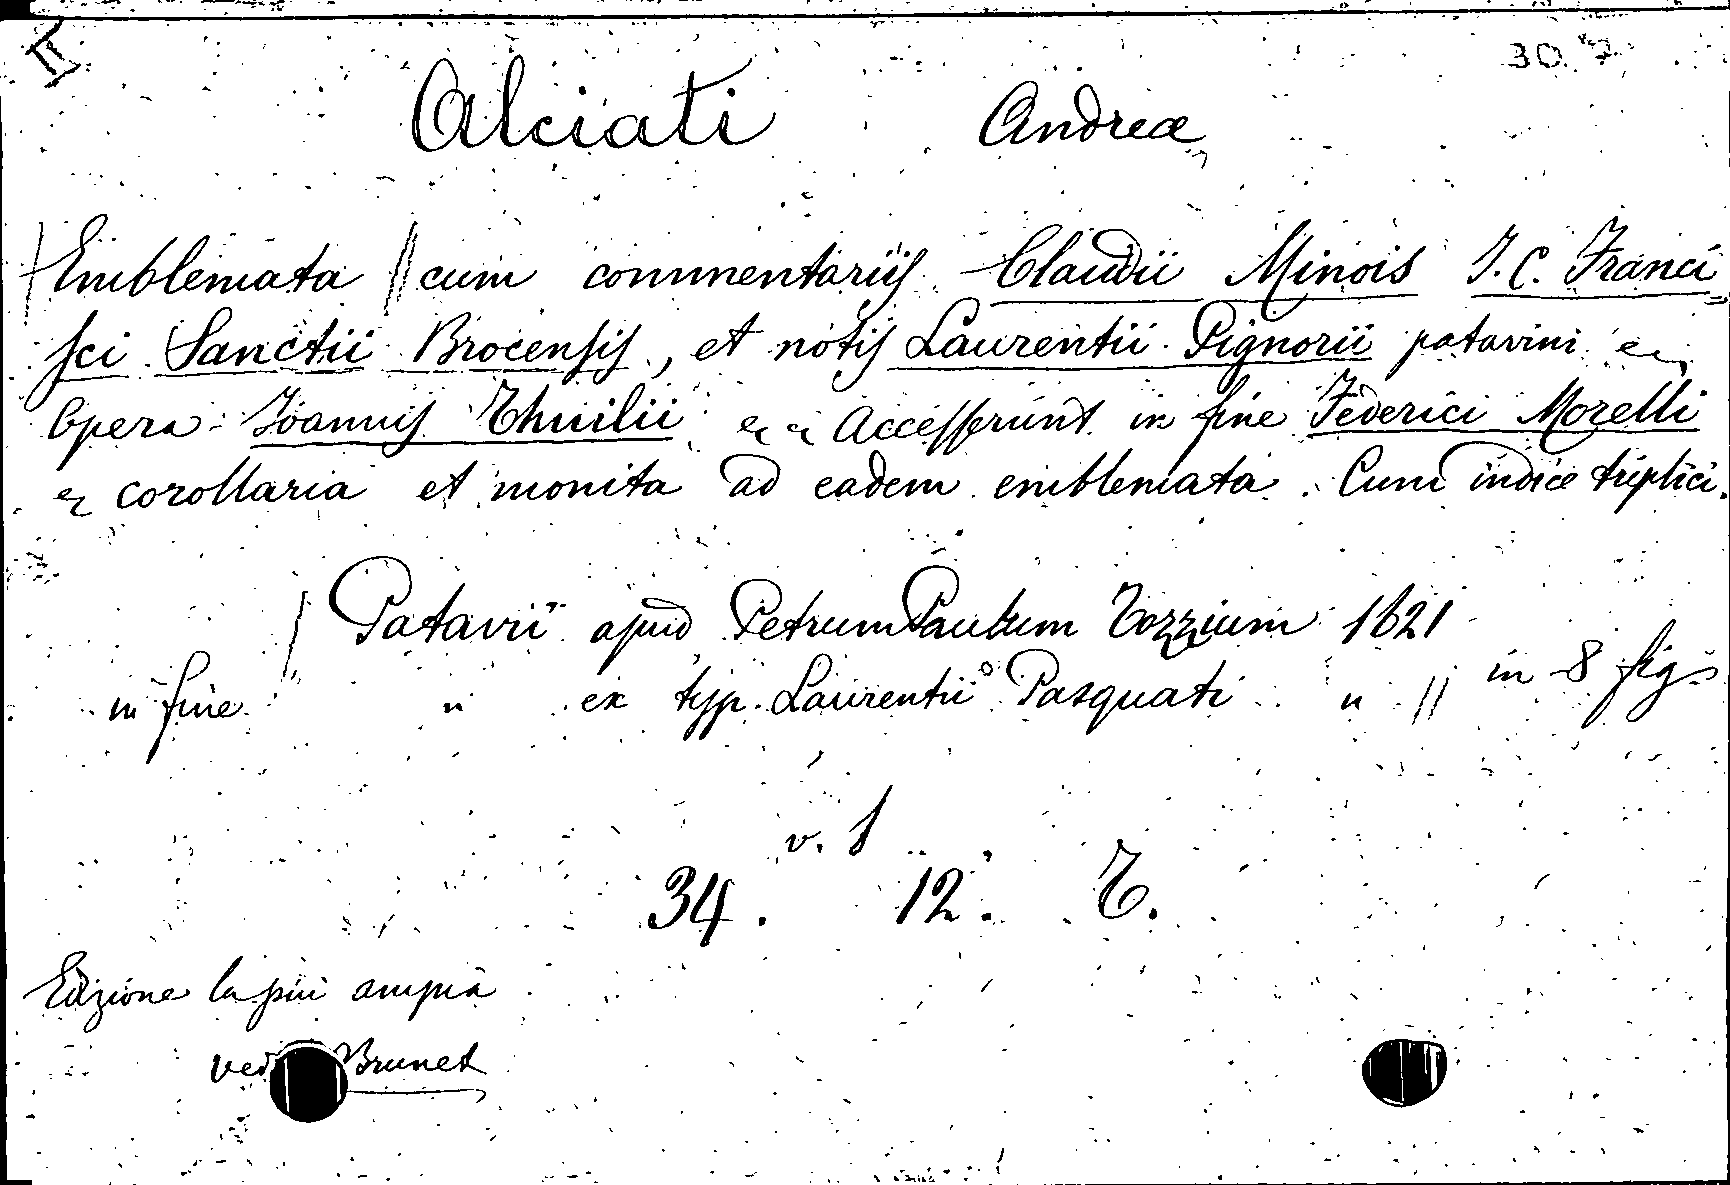 30. 7
Alciati Andreæ
Emblemata // cum commentariis Claudii Minois J. C. Franci
sci Sanctii Brocensis, et notis Laurentii Pignorii patavini &
Opera Joannis Thuilii & & Accesserunt in fine Federici Morelli
& corollaria et monita ad eadem emblemata. Cum indice triplici.
/ Patavii apud Petrum Paulum Tozzium 1621
in 8 fig.
in fine " " ex typ. Laurentii Pasquati " //
v. 1
34. 12. T.
Edizione la più ampia
ved Brunet